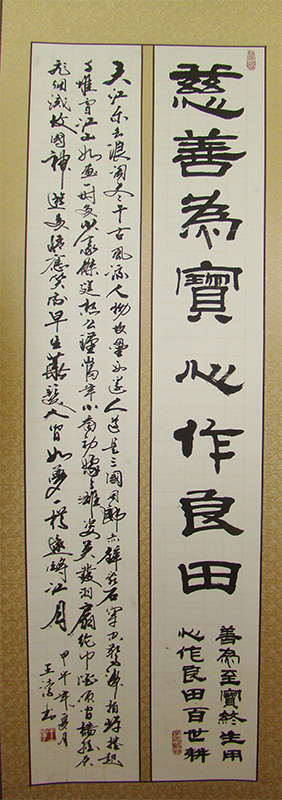 慈善為寶 心作良田
善為至寶終生用
心作良田百世耕
大江东去浪淘尽千古風流人物故壘西边人道是三國周郎赤壁乱石穿空惊涛拍岸捲起
千堆雪江山如画一时多少豪傑遥想公瑾當年小喬初嫁了雄姿英發羽扇纶巾谈笑间樯櫓灰
飛烟滅故國神遊多情應笑我早生華髮人间如夢一樽還酹江月
甲午年夏月